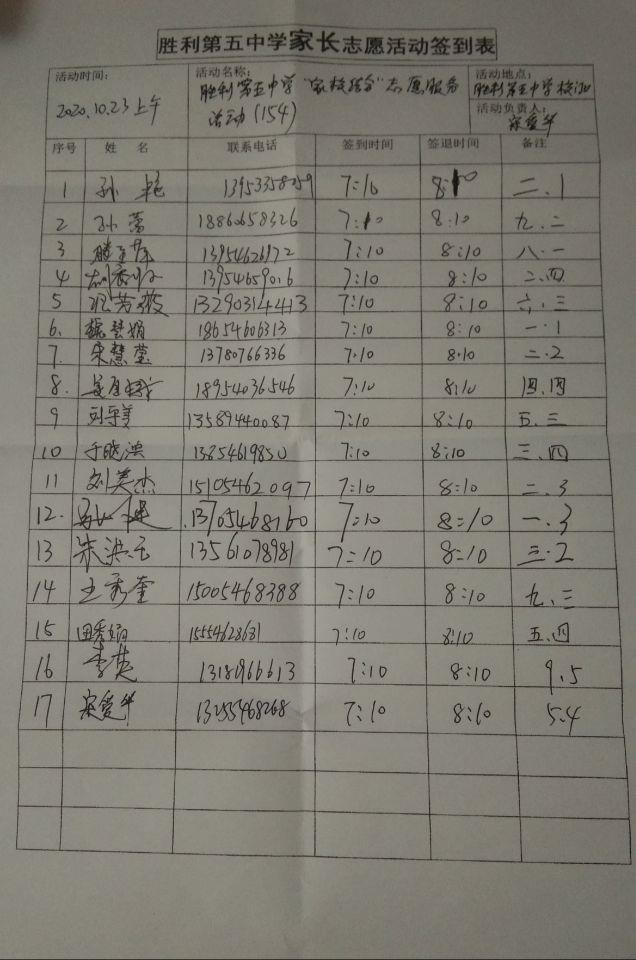 胜利第五中学家长志愿活动签到表
活动时间: 2020.10.23上午
活动名称: 胜利第五中学"家校结合"志愿服务
活动(154)
活动地点: 胜利第五中学校门口
活动负责人: 宋爱华
序号 姓 名 联系电话 签到时间 签退时间 备注
1 孙 艳 13953358059 7:10 8:10 二.1
2 孙 蕾 18860658326 7:10 8:10 九.二
3 13954626972 7:10 8:10 八.一
4 13954659016 7:10 8:10 二.四
5 13290314413 7:10 8:10 六.三
6. 魏慧娟 18654606313 7:10 8:10 一.1
7. 宋慧莹 13780766336 7:10 8:10 二.2
8. 18954036546 7:10 8:10 四.四
9 13589440087 7:10 8:10 五.三
10 于晓洪 13854619850 7:10 8:10 三.四
11 刘美杰 15105462097 7:10 8:10 二.3
12. 13705468160 7:10 8:10 一.3
13 朱洪玉 13561078981 7:10 8:10 三.2
14 王秀奎 15005468388 7:10 8:10 九.三
15 田秀娟 15554628631 7:10 8:10 五.四
16 李英 1318966613 7:10 8:10 9.5
17 宋爱华 13255468268 7:10 8:10 5.4